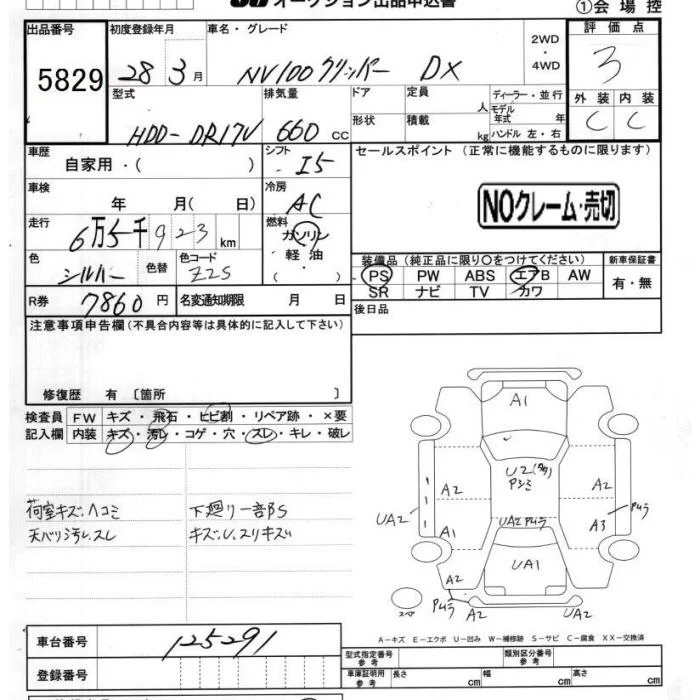 オークション出品申込書
①会場控
出品番号 初度登録年月 車名・グレード 2WD・4WD 評価点
5829 28 3月 NV100クリッパー DX 3
型式 排気量 ドア 定員 人 ディーラー・並行 外装 内装
HDD-DR17V 660 CC 形状 積載 kg モデル年式 年 ハンドル 左・右 C C
車歴 シフト セールスポイント (正常に機能するものに限ります)
自家用・( ) I5
車検 年 月( 日) 冷房 AC NOクレーム・売切
走行 6万5千923km 燃料 ガソリン・軽油・( )
装備品(純正品に限り○をつけてください) 新車保証書
色 シルバー 色替 色コード Z2S PS PW ABS エアB AW 有・無
SR ナビ TV カワ
R券 7860円 名変通知期限 月 日 後日品
注意事項申告欄(不具合内容等は具体的に記入して下さい)
修復歴 有 〔箇所 〕
検査員記入欄 FW キズ・飛石・ヒビ割・リペア跡・×要
内装 キズ・汚レ・コゲ・穴・スレ・キレ・破レ
荷室キズ.ヘコミ 下廻リ一部S
天バリ汚レ.スレ
A1
U2
A2 A2
UA2
A1 UA2 A3
UA1
A2
スペア A2 UA2
A-キズ E-エクボ U-凹み W-補修跡 S-サビ C-腐食 XX-交換済
車台番号 125291 型式指定番号 参考 類別区分番号 参考
登録番号 車庫証明用 参考 長さ cm 幅 cm 高さ cm